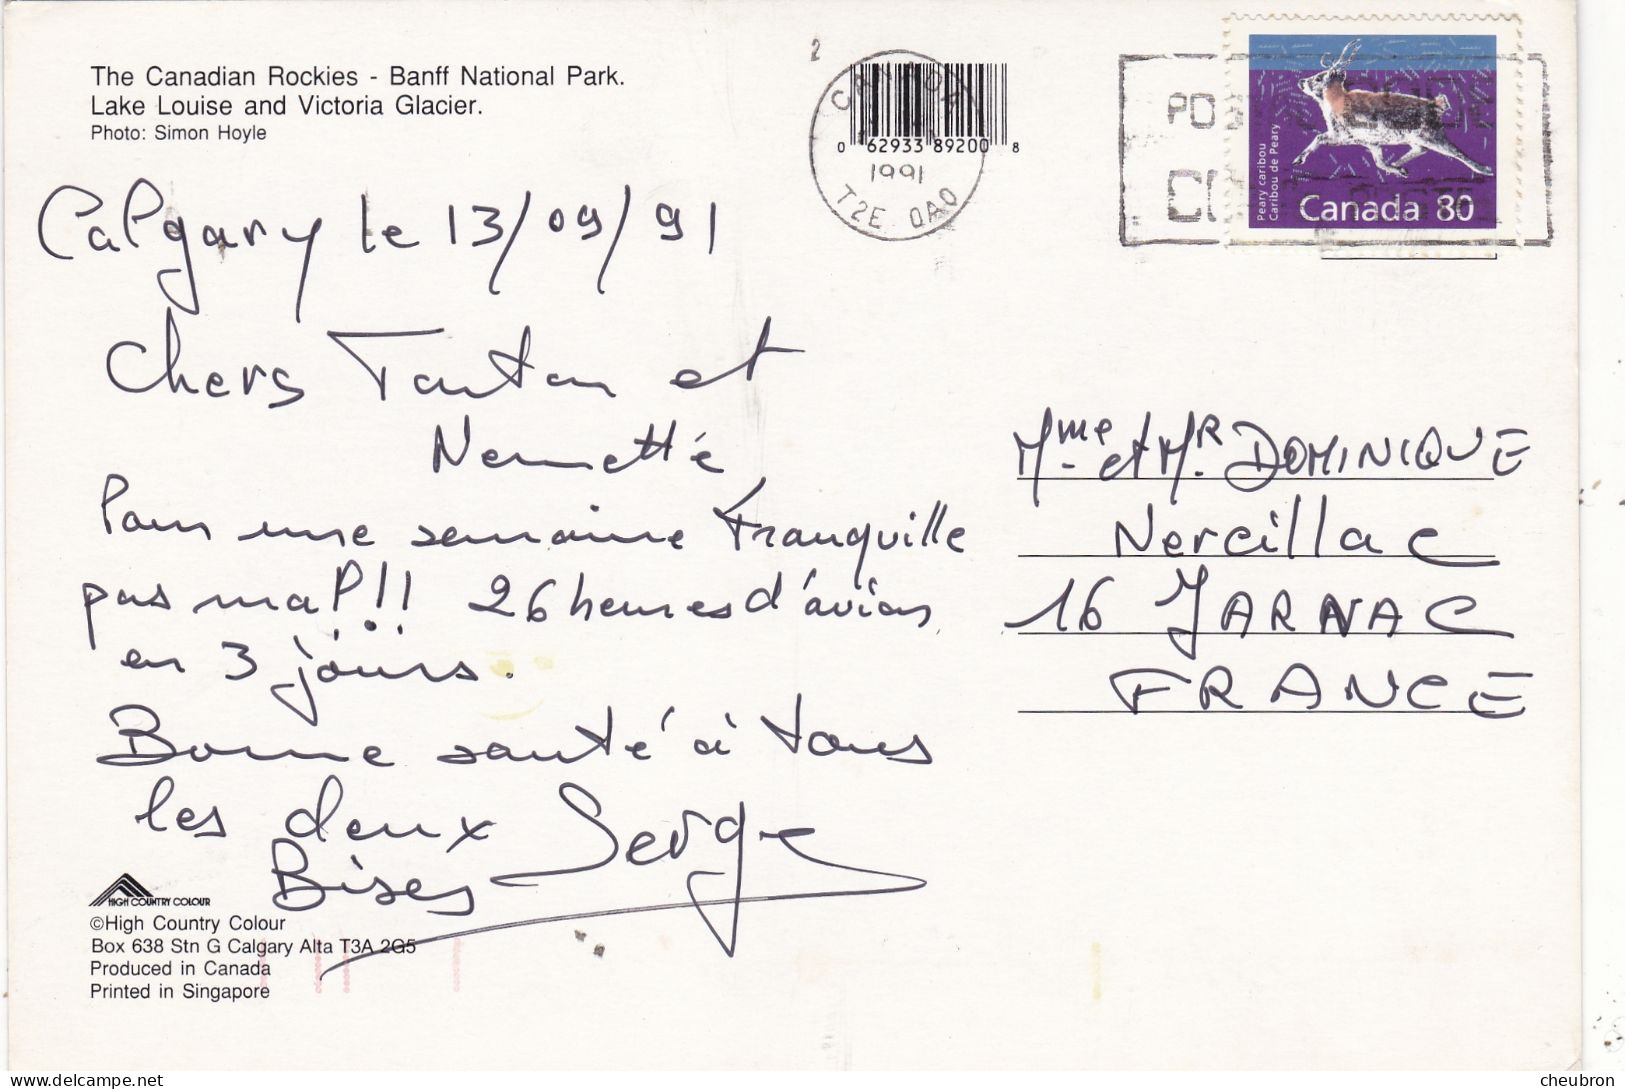 The Canadian Rockies - Banff National Park.
Lake Louise and Victoria Glacier.
Photo: Simon Hoyle
2
CANADA
0 62933 89200 8
1991
T2E 0A0
POS
CO
Peary caribou
Caribou de Peary
Canada 80
Calgary le 13/09/91
Chers Tonton et
Nenette
Pour une semaine tranquille
pas mal!! 26 heures d'avion
en 3 jours.
Bonne santé à tous
les deux
Bises Serge
Mme et MR DOMINIQUE
Nercillac
16 JARNAC
FRANCE
HIGH COUNTRY COLOUR
©High Country Colour
Box 638 Stn G Calgary Alta T3A 2G5
Produced in Canada
Printed in Singapore
cheubron